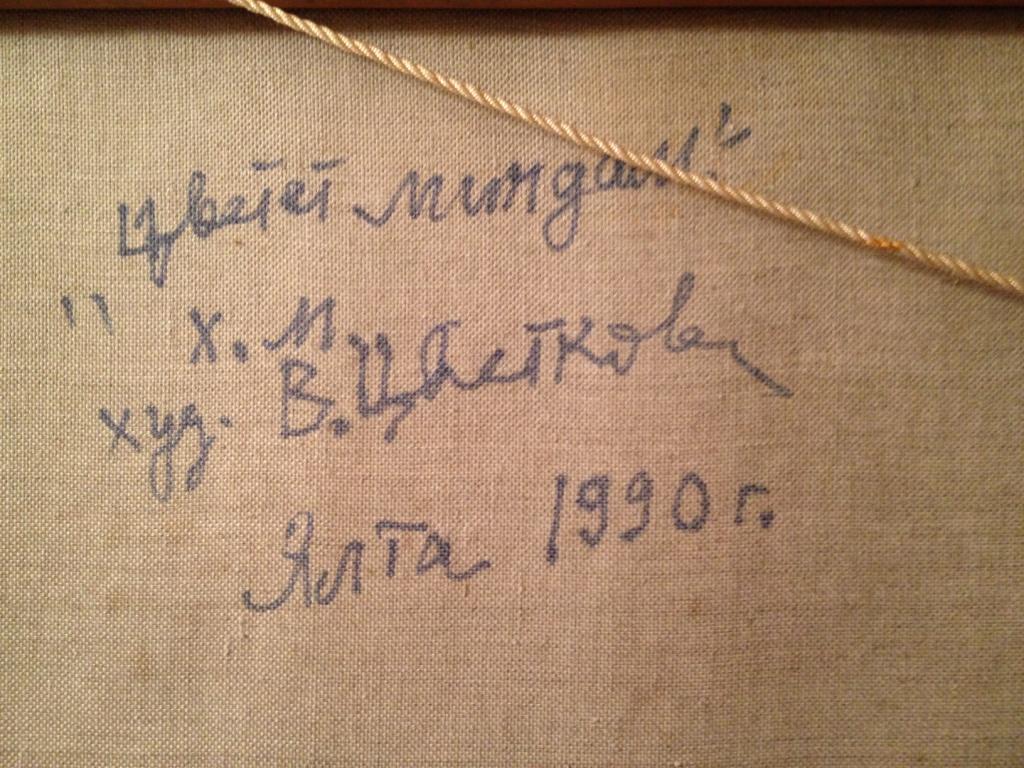 Цветет миндаль"
" х. м.
худ. В. Цветкова
Ялта 1990 г.